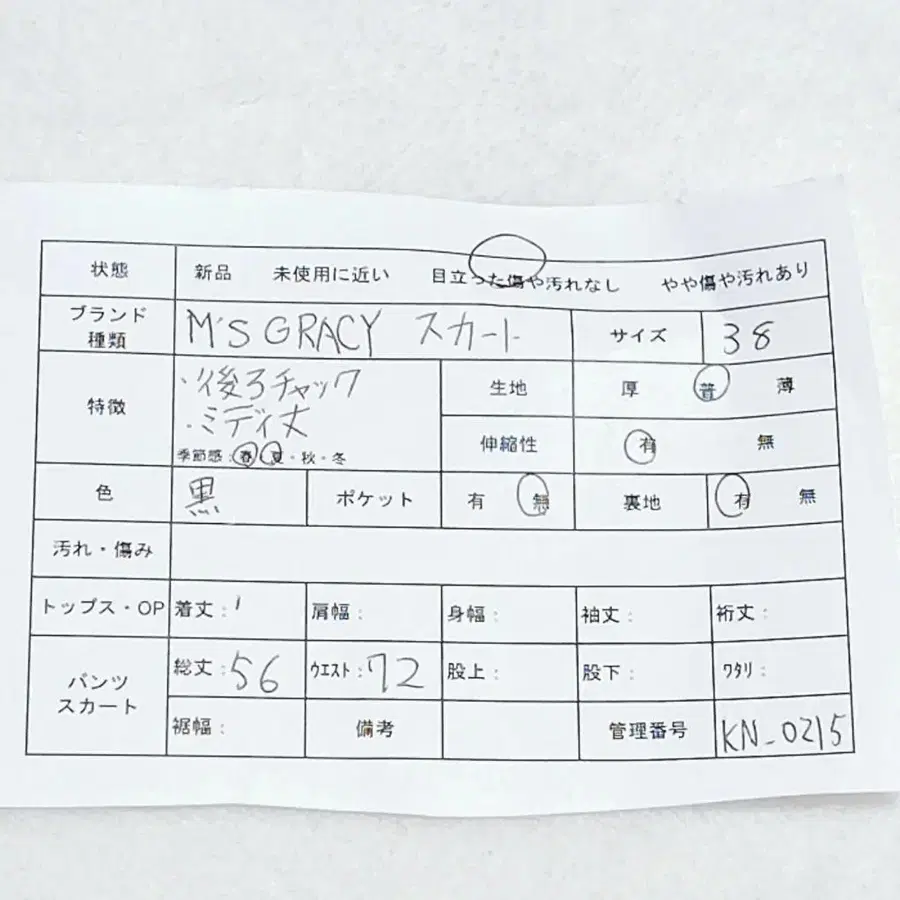 状態 新品 未使用に近い 目立った傷や汚れなし やや傷や汚れあり
ブランド 種類 M'S GRACY スカート サイズ 38
特徴 ・後ろチャック
・ミディ丈
季節感：春・夏・秋・冬
生地 厚 普 薄
伸縮性 有 無
色 黒 ポケット 有 無 裏地 有 無
汚れ・傷み
トップス・OP 着丈： 肩幅： 身幅： 袖丈： 裄丈：
パンツ スカート 総丈：56 ウエスト：72 股上： 股下： ワタリ：
裾幅： 備考 管理番号 KN-0215